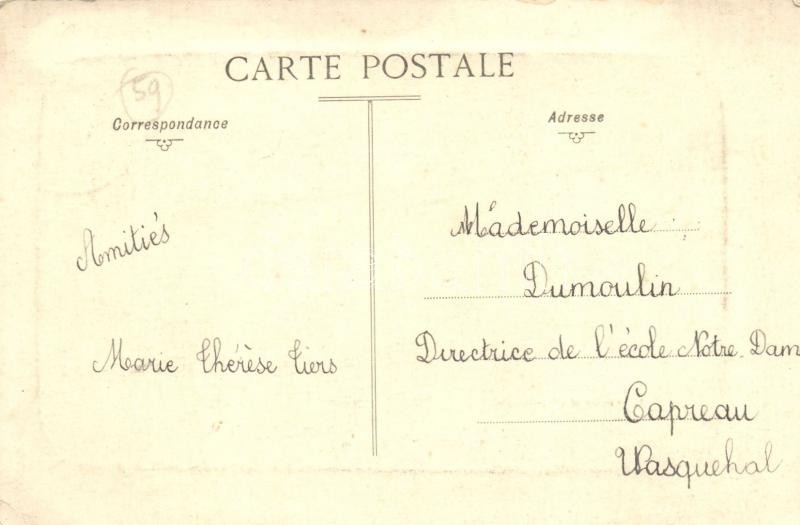 CARTE POSTALE
59
Correspondance
Amitiés
Marie Thérèse Tiers
Adresse
Mademoiselle
Dumoulin
Directrice de l'école Notre-Dam
Capreau
Wasquehal